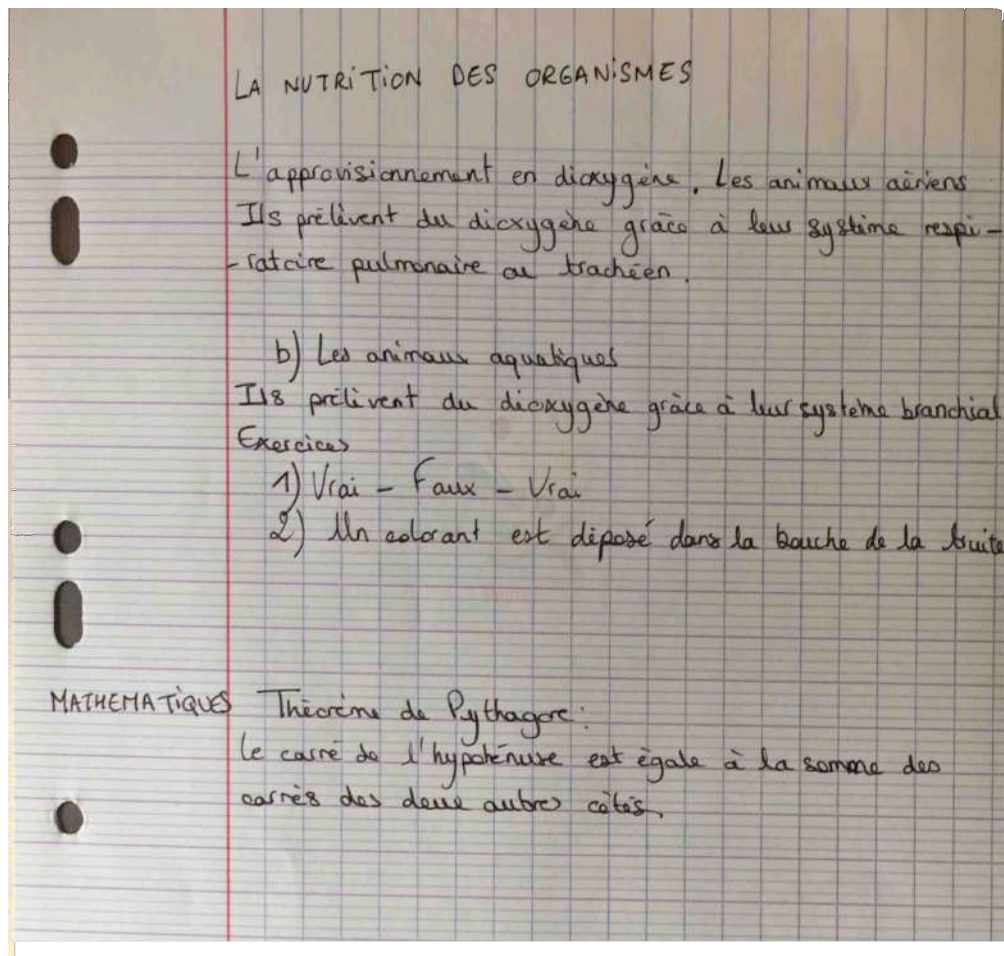 LA NUTRITION DES ORGANISMES
L'approvisionnement en dioxygène. Les animaux aériens
Ils prélèvent du dioxygène grâce à leur système respi-
-ratoire pulmonaire ou trachéen.
b) Les animaux aquatiques
Ils prélèvent du dioxygène grâce à leur système branchial
Exercices
1) Vrai - Faux - Vrai
2) Un colorant est déposé dans la bouche de la truite
MATHEMATIQUES Théorème de Pythagore:
le carré de l'hypoténuse est égale à la somme des
carrés des deux autres côtés.